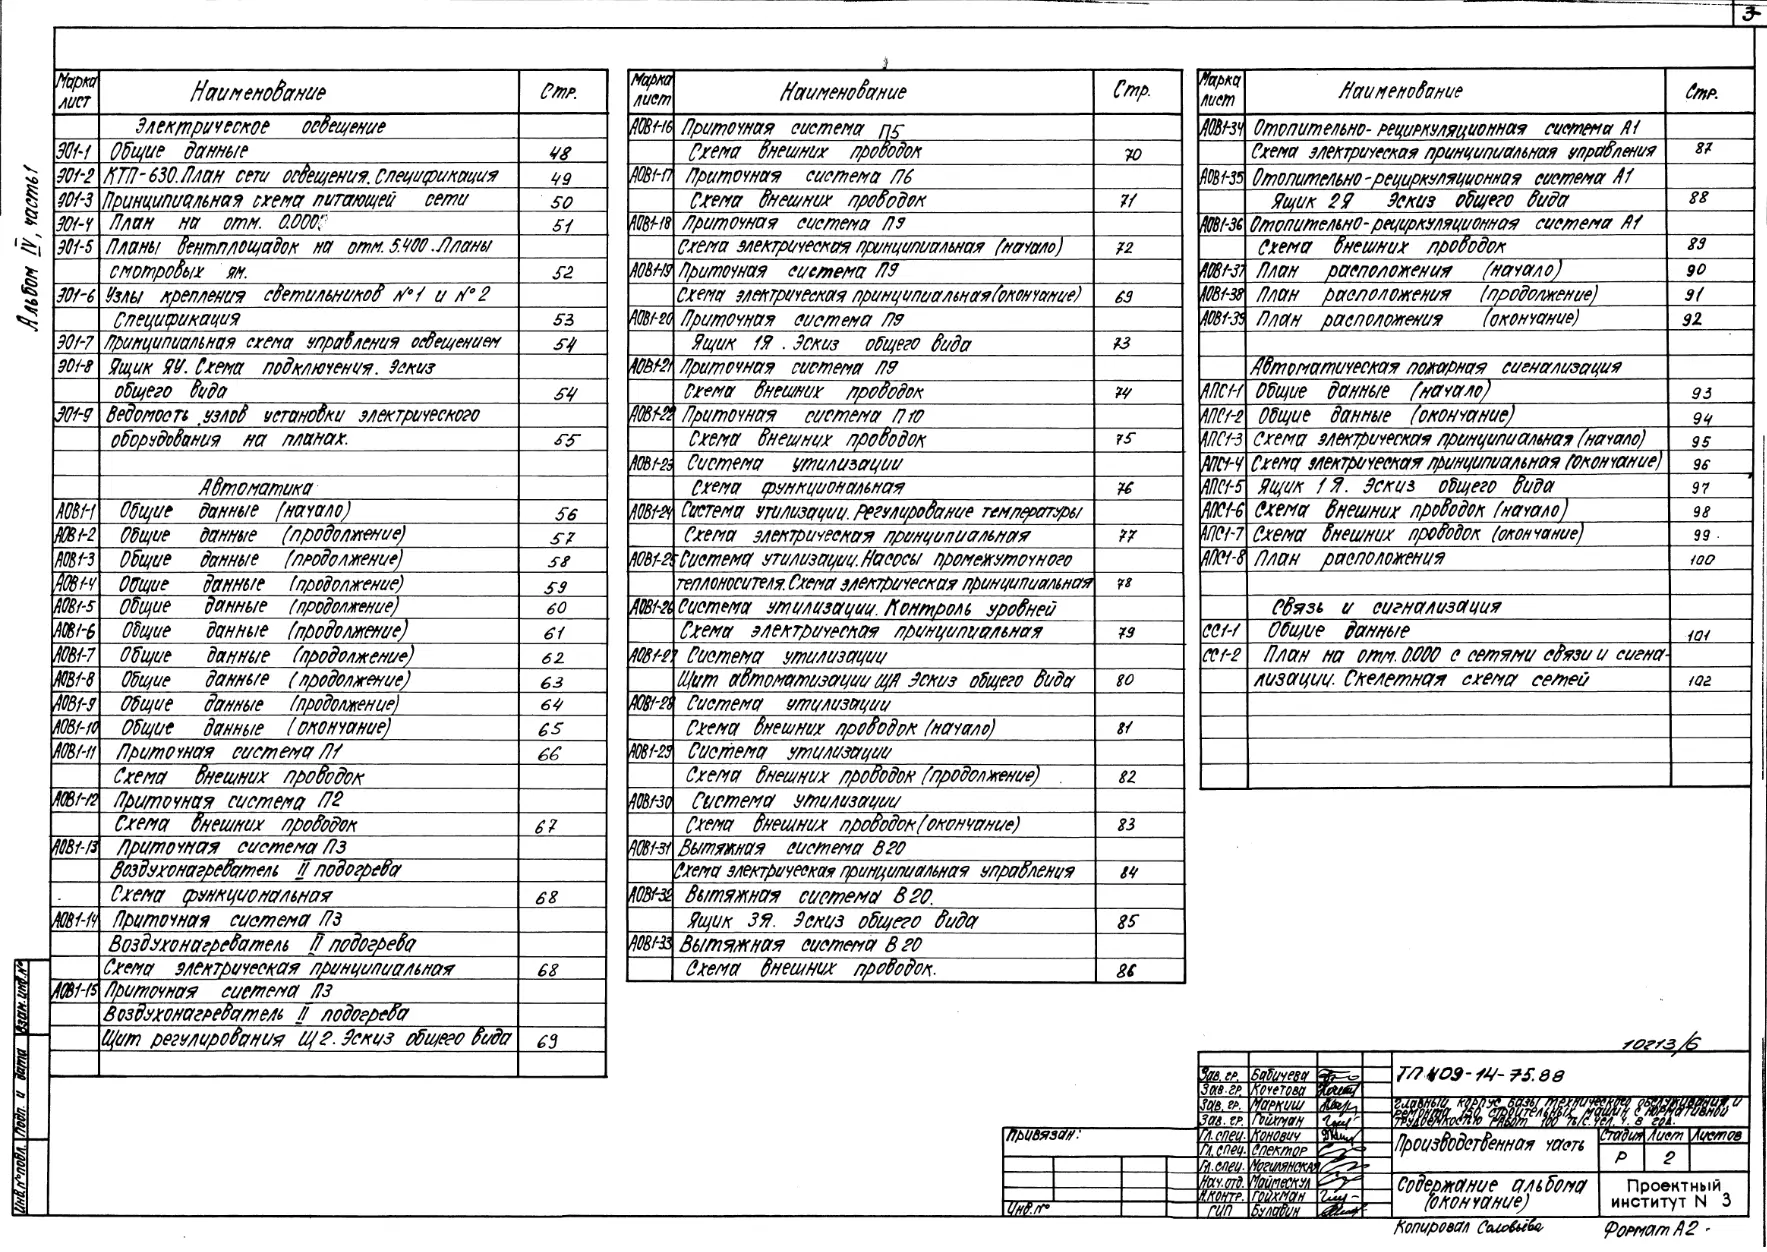 3
Альбом IV, часть 1
Марка лист Наименование Стр.
Электрическое освещение
ЭО1-1 Общие данные 48
ЭО1-2 КТП-630. План сети освещения. Спецификация 49
ЭО1-3 Принципиальная схема питающей сети 50
ЭО1-4 План на отм. 0.000 51
ЭО1-5 Планы вентплощадок на отм. 5.400. Планы
смотровых ям. 52
ЭО1-6 Узлы крепления светильников №1 и №2
Спецификация 53
ЭО1-7 Принципиальная схема управления освещением 54
ЭО1-8 Ящик ЯУ. Схема подключения. Эскиз
общего вида 54
ЭО1-9 Ведомость узлов установки электрического
оборудования на планах. 55
Автоматика
АОВ1-1 Общие данные (начало) 56
АОВ1-2 Общие данные (продолжение) 57
АОВ1-3 Общие данные (продолжение) 58
АОВ1-4 Общие данные (продолжение) 59
АОВ1-5 Общие данные (продолжение) 60
АОВ1-6 Общие данные (продолжение) 61
АОВ1-7 Общие данные (продолжение) 62
АОВ1-8 Общие данные (продолжение) 63
АОВ1-9 Общие данные (продолжение) 64
АОВ1-10 Общие данные (окончание) 65
АОВ1-11 Приточная система П1 66
Схема внешних проводок
АОВ1-12 Приточная система П2
Схема внешних проводок 67
АОВ1-13 Приточная система П3
Воздухонагреватель II подогрева
Схема функциональная 68
АОВ1-14 Приточная система П3
Воздухонагреватель II подогрева
Схема электрическая принципиальная 68
АОВ1-15 Приточная система П3
Воздухонагреватель II подогрева
Щит регулирования Щ2. Эскиз общего вида 69
Марка лист Наименование Стр.
АОВ1-16 Приточная система П5
Схема внешних проводок 70
АОВ1-17 Приточная система П6
Схема внешних проводок 71
АОВ1-18 Приточная система П9
Схема электрическая принципиальная (начало) 72
АОВ1-19 Приточная система П9
Схема электрическая принципиальная (окончание) 69
АОВ1-20 Приточная система П9
Ящик 1Я. Эскиз общего вида 73
АОВ1-21 Приточная система П9
Схема внешних проводок 74
АОВ1-22 Приточная система П10
Схема внешних проводок 75
АОВ1-23 Система утилизации
Схема функциональная 76
АОВ1-24 Система утилизации. Регулирование температуры
Схема электрическая принципиальная 77
АОВ1-25 Система утилизации. Насосы промежуточного
теплоносителя. Схема электрическая принципиальная 78
АОВ1-26 Система утилизации. Контроль уровней
Схема электрическая принципиальная 79
АОВ1-27 Система утилизации
Щит автоматизации ЩА Эскиз общего вида 80
АОВ1-28 Система утилизации
Схема внешних проводок (начало) 81
АОВ1-29 Система утилизации
Схема внешних проводок (продолжение) 82
АОВ1-30 Система утилизации
Схема внешних проводок (окончание) 83
АОВ1-31 Вытяжная система В20
Схема электрическая принципиальная управления 84
АОВ1-32 Вытяжная система В20.
Ящик 3Я. Эскиз общего вида 85
АОВ1-33 Вытяжная система В20
Схема внешних проводок. 86
Марка лист Наименование Стр.
АОВ1-34 Отопительно-рециркуляционная система А1
Схема электрическая принципиальная управления 87
АОВ1-35 Отопительно-рециркуляционная система А1
Ящик 2Я Эскиз общего вида 88
АОВ1-36 Отопительно-рециркуляционная система А1
Схема внешних проводок 89
АОВ1-37 План расположения (начало) 90
АОВ1-38 План расположения (продолжение) 91
АОВ1-39 План расположения (окончание) 92
Автоматическая пожарная сигнализация
АПС1-1 Общие данные (начало) 93
АПС1-2 Общие данные (окончание) 94
АПС1-3 Схема электрическая принципиальная (начало) 95
АПС1-4 Схема электрическая принципиальная (окончание) 96
АПС1-5 Ящик 1Я. Эскиз общего вида 97
АПС1-6 Схема внешних проводок (начало) 98
АПС1-7 Схема внешних проводок (окончание) 99
АПС1-8 План расположения 100
Связь и сигнализация
СС1-1 Общие данные 101
СС1-2 План на отм. 0.000 с сетями связи и сигна-
лизации. Скелетная схема сетей 102
10213/6
Зав. гр. Бабичева
Зав. гр. Кочетова
Зав. гр. Маркиш
Зав. гр. Гойхман
Гл. спец. Конович
Гл. спец. Спектор
Гл. спец. Могилянская
Нач. отд. Маймескул
Н. контр. Гойхман
ГИП Булавин
ТП 409-14-75.88
Главный корпус базы технического обслуживания и
ремонта 150 строительных машин с нормативной
трудоемкостью работ 100 тыс. чел. ч. в год.
Производственная часть
Стадия Лист Листов
Р 2
Содержание альбома
(окончание)
Проектный
институт N 3
Привязан:
Инв. №
Инв. № подл. Подп. и дата Взам. инв. №
Копировал Соловьёва Формат А2